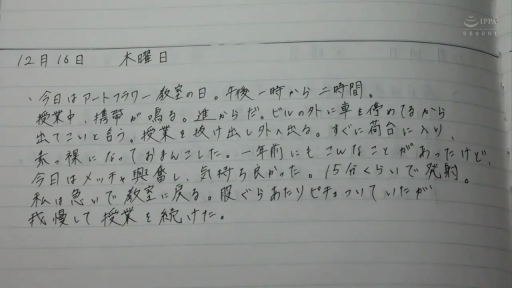 IPPA
12月16日　木曜日
、今日はアートフラワー教室の日。午後一時から二時間。
授業中、携帯が鳴る。進からだ。ビルの外に車を停めてるから
出てこいと言う。授業を抜け出し外へ出る。すぐに荷台に入り、
素っ裸になっておまんこした。一年前にもこんなことがあったけど、
今日はメッチャ興奮し、気持ち良かった。15分くらいで発射。
私は急いで教室に戻る。股ぐらあたりピチョついていたが
我慢して授業を続けた。